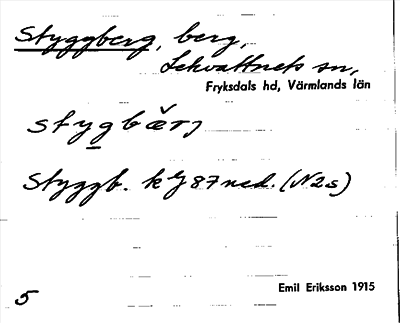 Styggberg, berg,
Lekvattnets sn,
Fryksdals hd, Värmlands län
stygbærj
Styggb. k 87 ned. (N2s)
5
Emil Eriksson 1915